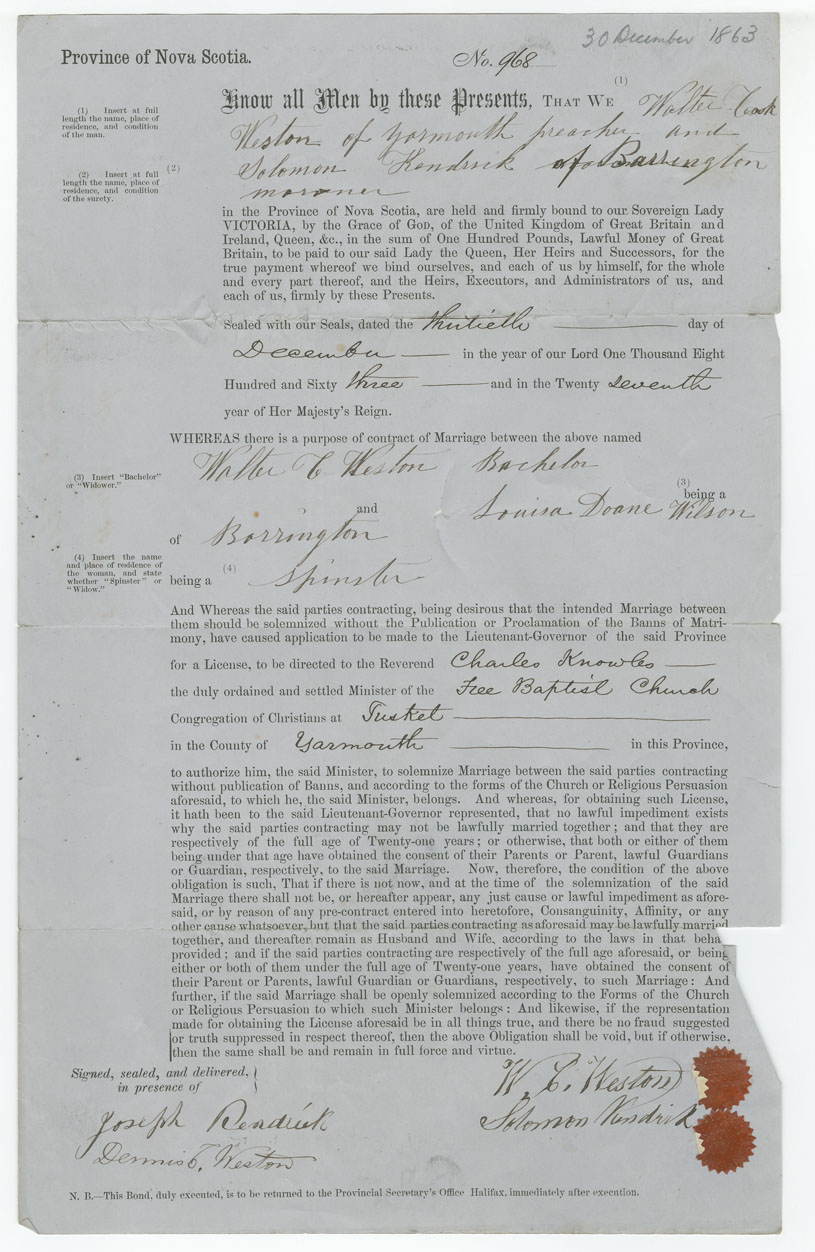 30 December 1863
Province of Nova Scotia.
No. 968
(1) Insert at full
length the name, place of
residence, and condition
of the man.
(2) Insert at full
length the name, place of
residence, and condition
of the surety.
Know all Men by these Presents, THAT WE (1) Walter Cook
Weston of Yarmouth preacher and
(2) Solomon Kendrick of Barrington
marener
in the Province of Nova Scotia, are held and firmly bound to our Sovereign Lady
VICTORIA, by the Grace of GOD, of the United Kingdom of Great Britain and
Ireland, Queen, &c., in the sum of One Hundred Pounds, Lawful Money of Great
Britain, to be paid to our said Lady the Queen, Her Heirs and Successors, for the
true payment whereof we bind ourselves, and each of us by himself, for the whole
and every part thereof, and the Heirs, Executors, and Administrators of us, and
each of us, firmly by these Presents.
Sealed with our Seals, dated the thirtieth day of
December in the year of our Lord One Thousand Eight
Hundred and Sixty three and in the Twenty seventh
year of Her Majesty's Reign.
WHEREAS there is a purpose of contract of Marriage between the above named
Walter C Weston Bachelor
(3) Insert "Bachelor"
or "Widower."
(3)
being a
and Louisa Doane Wilson
of Barrington
(4) Insert the name
and place of residence of
the woman, and state
whether "Spinster" or
"Widow."
being a (4) Spinster
And Whereas the said parties contracting, being desirous that the intended Marriage between
them should be solemnized without the Publication or Proclamation of the Banns of Matri-
mony, have caused application to be made to the Lieutenant-Governor of the said Province
for a License, to be directed to the Reverend Charles Knowles
the duly ordained and settled Minister of the Free Baptist Church
Congregation of Christians at Tusket
in the County of Yarmouth in this Province,
to authorize him, the said Minister, to solemnize Marriage between the said parties contracting
without publication of Banns, and according to the forms of the Church or Religious Persuasion
aforesaid, to which he, the said Minister, belongs. And whereas, for obtaining such License,
it hath been to the said Lieutenant-Governor represented, that no lawful impediment exists
why the said parties contracting may not be lawfully married together; and that they are
respectively of the full age of Twenty-one years; or otherwise, that both or either of them
being under that age have obtained the consent of their Parents or Parent, lawful Guardians
or Guardian, respectively, to the said Marriage. Now, therefore, the condition of the above
obligation is such, That if there is not now, and at the time of the solemnization of the said
Marriage there shall not be, or hereafter appear, any just cause or lawful impediment as afore-
said, or by reason of any pre-contract entered into heretofore, Consanguinity, Affinity, or any
other cause whatsoever, but that the said parties contracting as aforesaid may be lawfully married
together, and thereafter remain as Husband and Wife, according to the laws in that beha
provided; and if the said parties contracting are respectively of the full age aforesaid, or being
either or both of them under the full age of Twenty-one years, have obtained the consent of
their Parent or Parents, lawful Guardian or Guardians, respectively, to such Marriage: And
further, if the said Marriage shall be openly solemnized according to the Forms of the Church
or Religious Persuasion to which such Minister belongs: And likewise, if the representation
made for obtaining the License aforesaid be in all things true, and there be no fraud suggested
or truth suppressed in respect thereof, then the above Obligation shall be void, but if otherwise,
then the same shall be and remain in full force and virtue.
Signed, sealed, and delivered,
in presence of
W. C. Weston
Solomon Kendrick
Joseph Kendrick
Dennis T. Weston
N. B.—This Bond, duly executed, is to be returned to the Provincial Secretary's Office Halifax, immediately after execution.